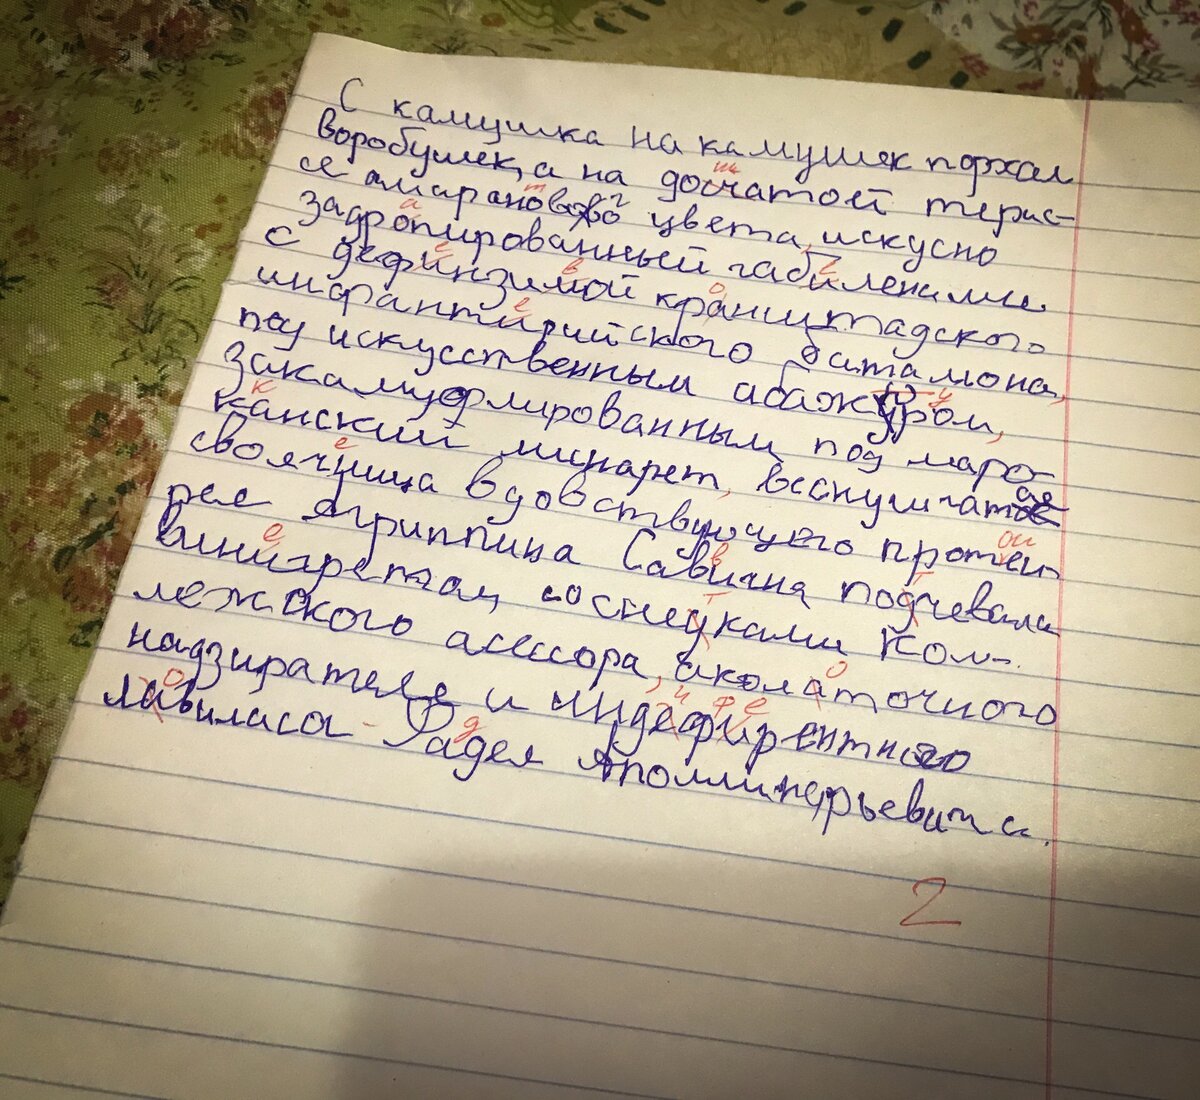 С камушка на камушек порхал
воробушек, а на досчатой терас-
се амаранового цвета, искусно
задропированный габиленами
с дефинзимой кранштадского
инфантирийского батальона,
под искусственным абажуром,
закамуфлированным под маро-
канский минарет, веснушчатое
своячница вдовствующего протеи-
рея Агриппина Савична подчевала
винигретом со снецками кол-
лежского асессора, околаточного
надзирателя и индефирентного
лавиласа - Фадея Аполлинарьевича.
2